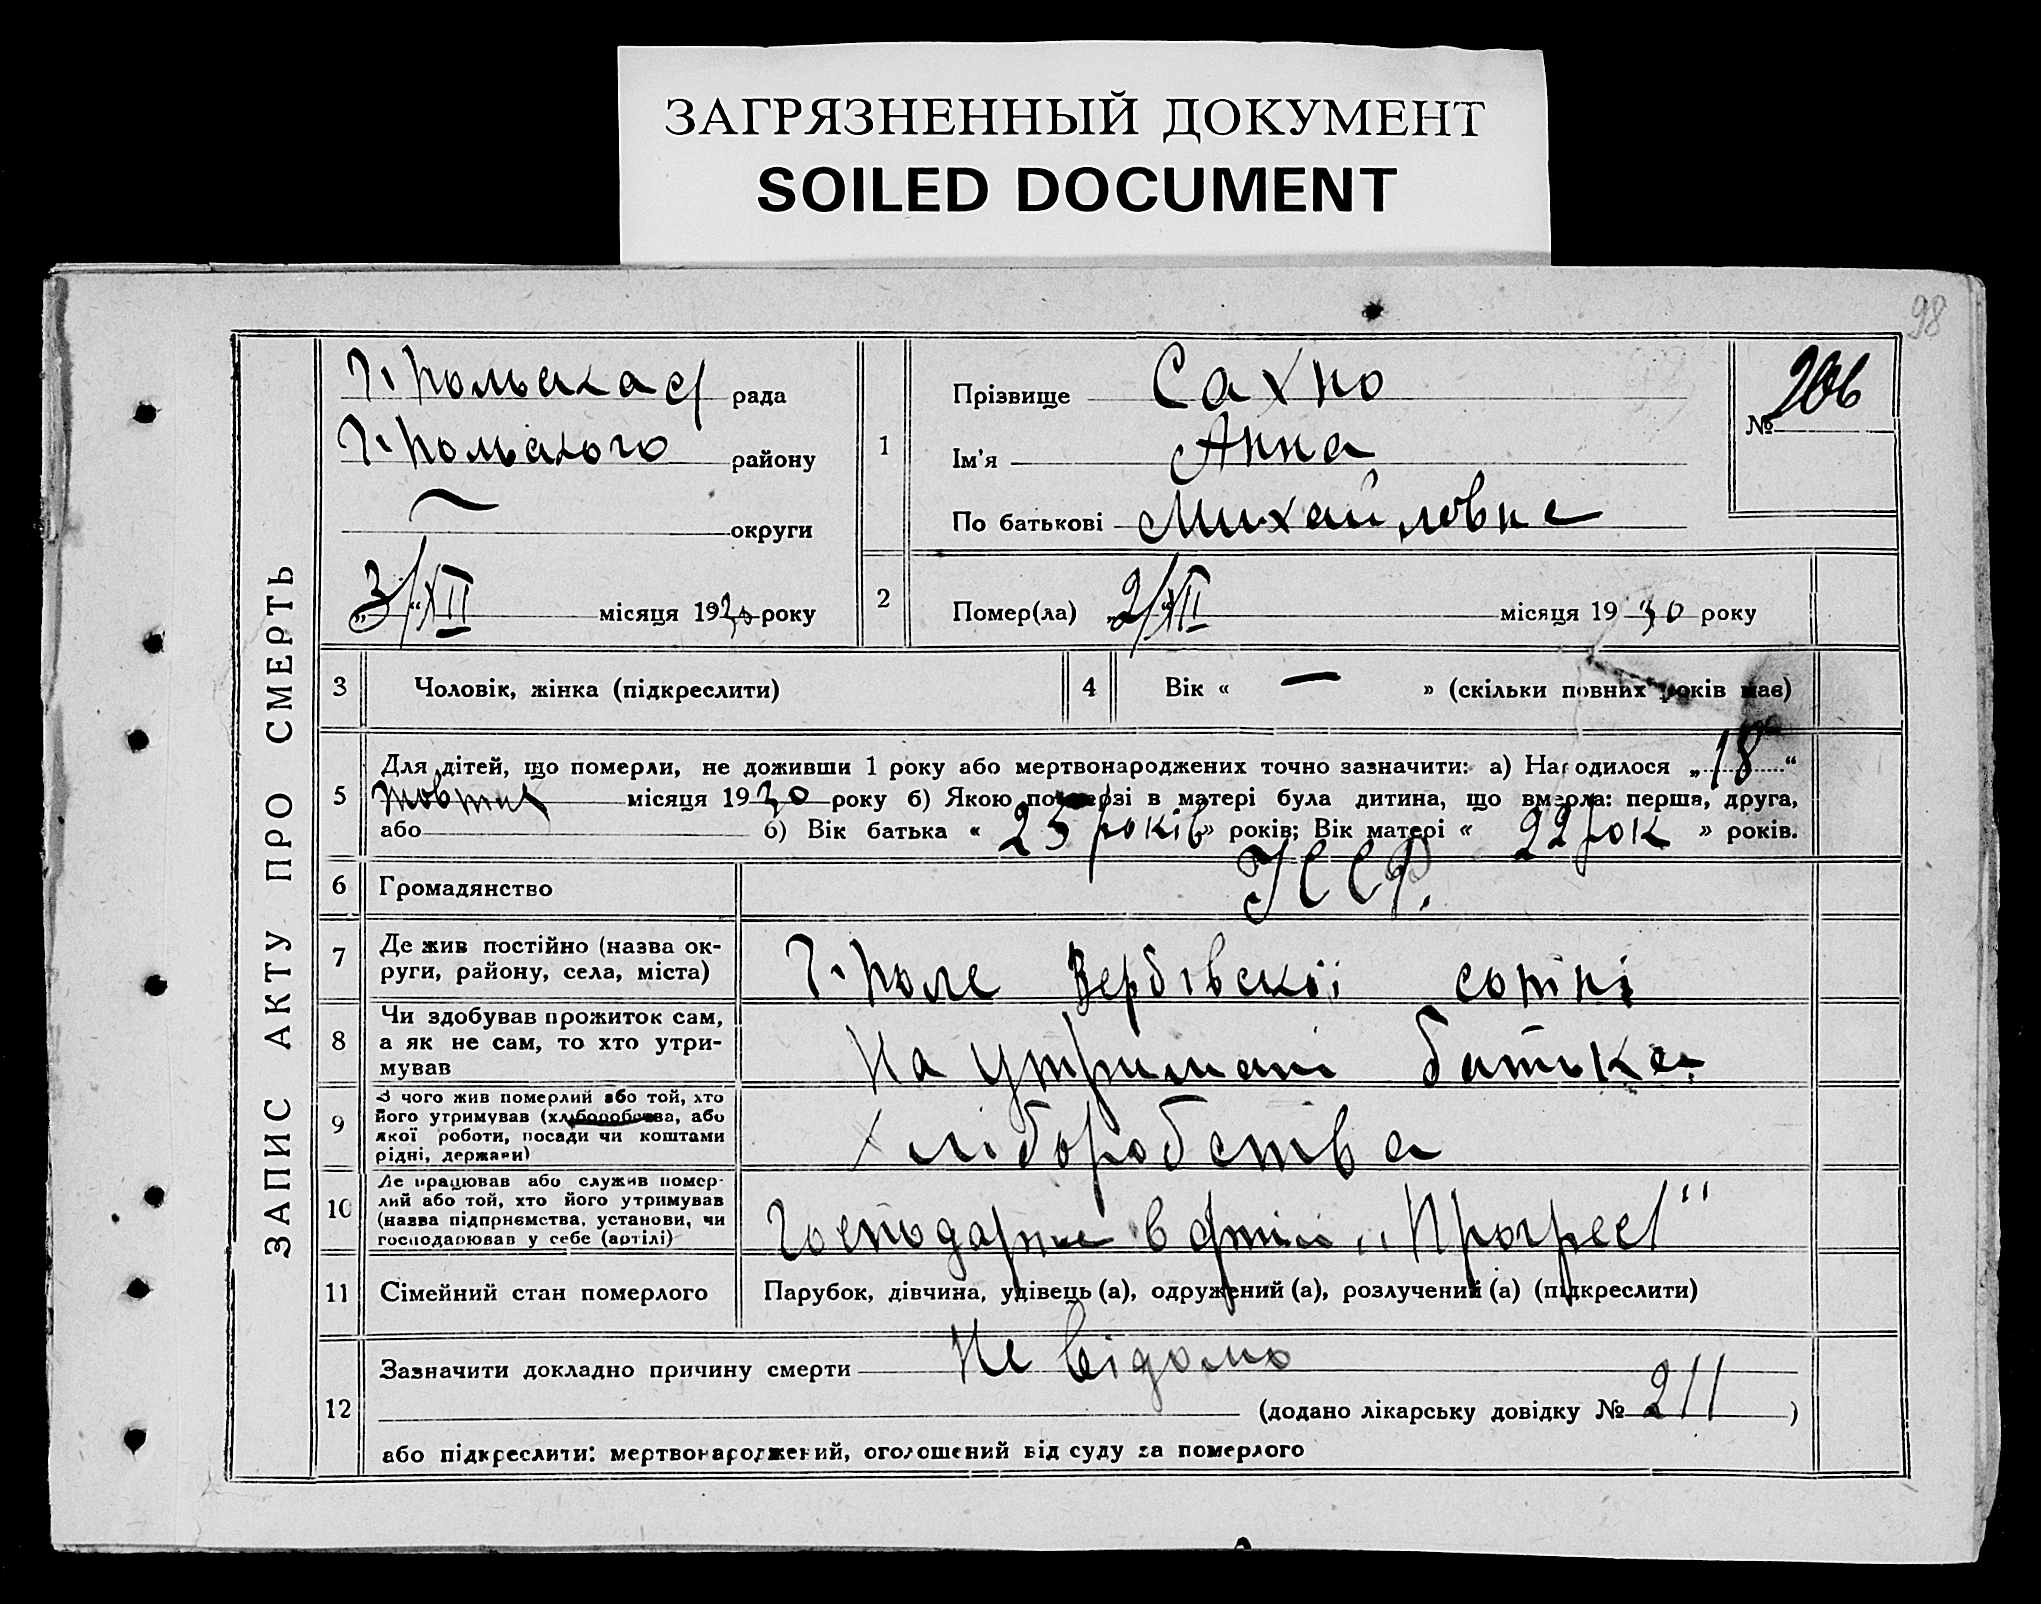 ЗАГРЯЗНЕННЫЙ ДОКУМЕНТ
SOILED DOCUMENT
98
ЗАПИС АКТУ ПРО СМЕРТЬ
Г. Польська с/ рада
Г. Польского району
— округи
„3/“ XII місяця 1930 року
1
Прізвище Сахно
Ім'я Анна
По батькові Михайловна
№ 206
2
Помер(ла) „2/“ XII місяця 1930 року
3 Чоловік, жінка (підкреслити)
4 Вік « — » (скільки повних років має)
5 Для дітей, що померли, не доживши 1 року або мертвонароджених точно зазначити: а) Народилося „18“
жовтня місяця 1930 року б) Якою по черзі в матері була дитина, що вмерла: перша, друга,
або б) Вік батька « 23 років » років; Вік матері « 22 рок » років.
6 Громадянство УССР.
7 Де жив постійно (назва ок-
руги, району, села, міста)
Г. Поле Вербівскої сотні
8 Чи здобував прожиток сам,
а як не сам, то хто утри-
мував
На утримані батька
9 З чого жив померлий або той, хто
його утримував (хліборобства, або
якої роботи, посади чи коштами
рідні, держави)
Хліборобства
10 Де працював або служив помер-
лий або той, хто його утримував
(назва підприємства, установи, чи
господарював у себе (артілі)
в Артілі „Прогрес"
11 Сімейний стан померлого
Парубок, дівчина, удівець (а), одружений (а), розлучений (а) (підкреслити)
12 Зазначити докладно причину смерти Не відомо
(додано лікарську довідку № 211 )
або підкреслити: мертвонароджений, оголошений від суду за померлого